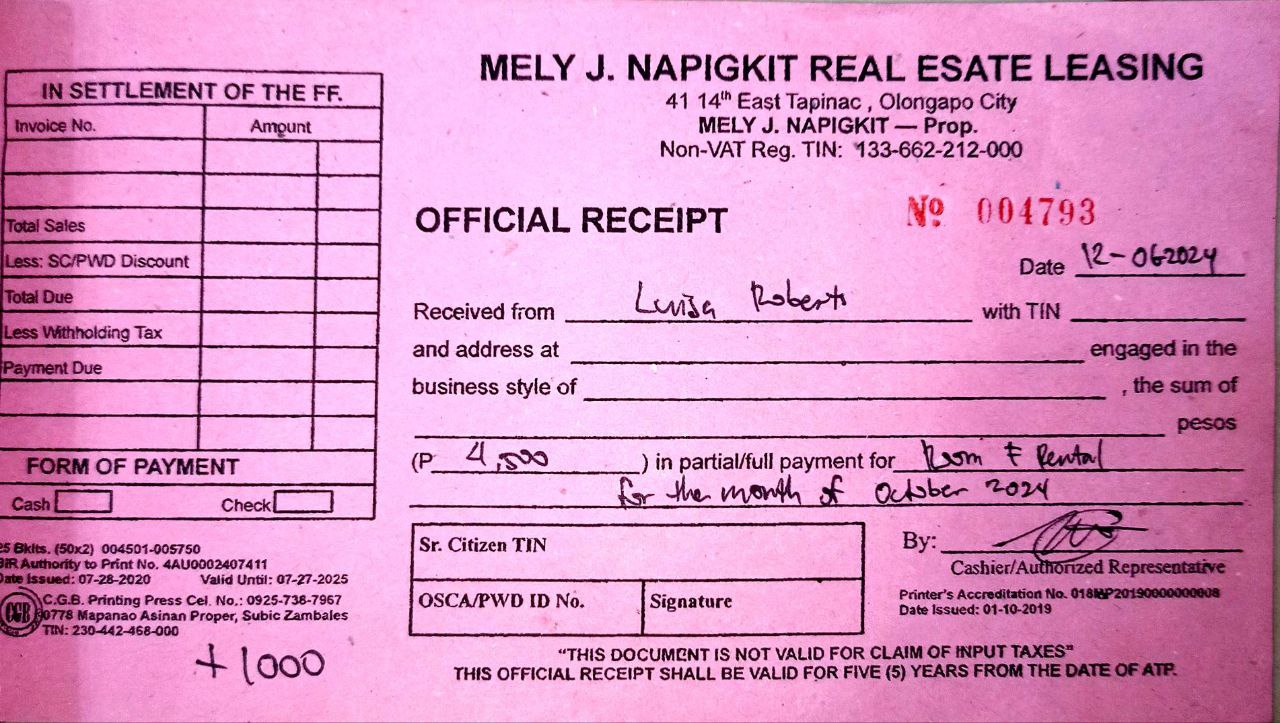 IN SETTLEMENT OF THE FF.
Invoice No. Amount
Total Sales
Less: SC/PWD Discount
Total Due
Less Withholding Tax
Payment Due
FORM OF PAYMENT
Cash Check
5 Bklts. (50x2) 004501-005750
BIR Authority to Print No. 4AU0002407411
Date Issued: 07-28-2020 Valid Until: 07-27-2025
CGB
C.G.B. Printing Press Cel. No.: 0925-738-7967
0778 Mapanao Asinan Proper, Subic Zambales
TIN: 230-442-468-000
+1000
MELY J. NAPIGKIT REAL ESATE LEASING
41 14th East Tapinac , Olongapo City
MELY J. NAPIGKIT — Prop.
Non-VAT Reg. TIN: 133-662-212-000
OFFICIAL RECEIPT № 004793
Date 12-062024
Received from Luisa Roberts with TIN
and address at engaged in the
business style of , the sum of
pesos
(P 4,500 ) in partial/full payment for Room F Rental
for the month of October 2024
Sr. Citizen TIN
OSCA/PWD ID No. Signature
By:
Cashier/Authorized Representative
Printer's Accreditation No.
Date Issued: 01-10-2019
"THIS DOCUMENT IS NOT VALID FOR CLAIM OF INPUT TAXES"
THIS OFFICIAL RECEIPT SHALL BE VALID FOR FIVE (5) YEARS FROM THE DATE OF ATP.